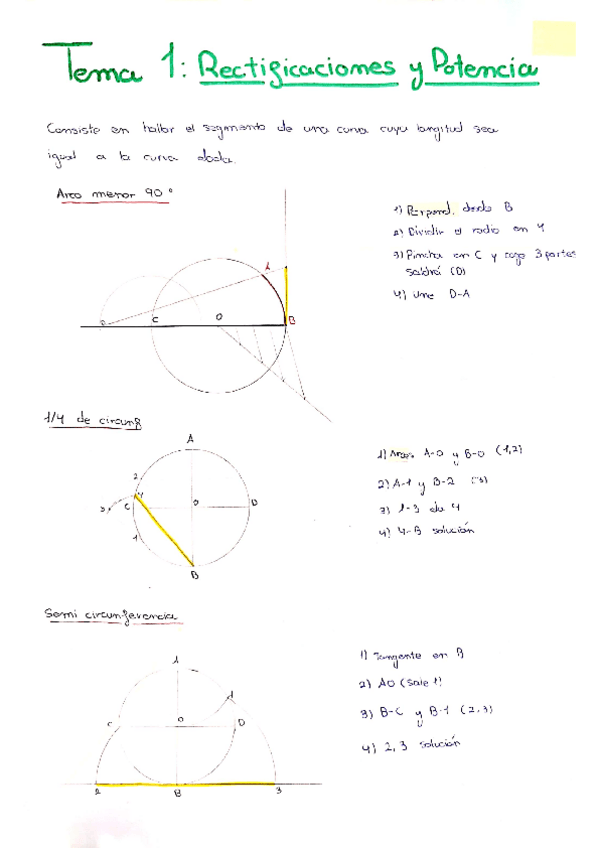 Tema 1: Rectificaciones y Potencia
Consiste en hallar el segmento de una curva cuya longitud sea
igual a la curva dada.
Arco menor 90º
1) Perpend. desde B
2) Dividir el radio en 4
3) Pincha en C y cojo 3 partes
saldrá (D)
4) Une D-A
A
D
C
O
B
1/4 de circunf
A
2
4
3
C
O
D
1
B
1) Arcos A-O y B-O (1,2)
2) A-1 y B-2 (3)
3) 1-3 da 4
4) 4-B solución
Semi circunferencia
A
1
C
O
D
2
B
3
1) Tangente en B
2) AO (Sale 1)
3) B-C y B-1 (2,3)
4) 2,3 solución